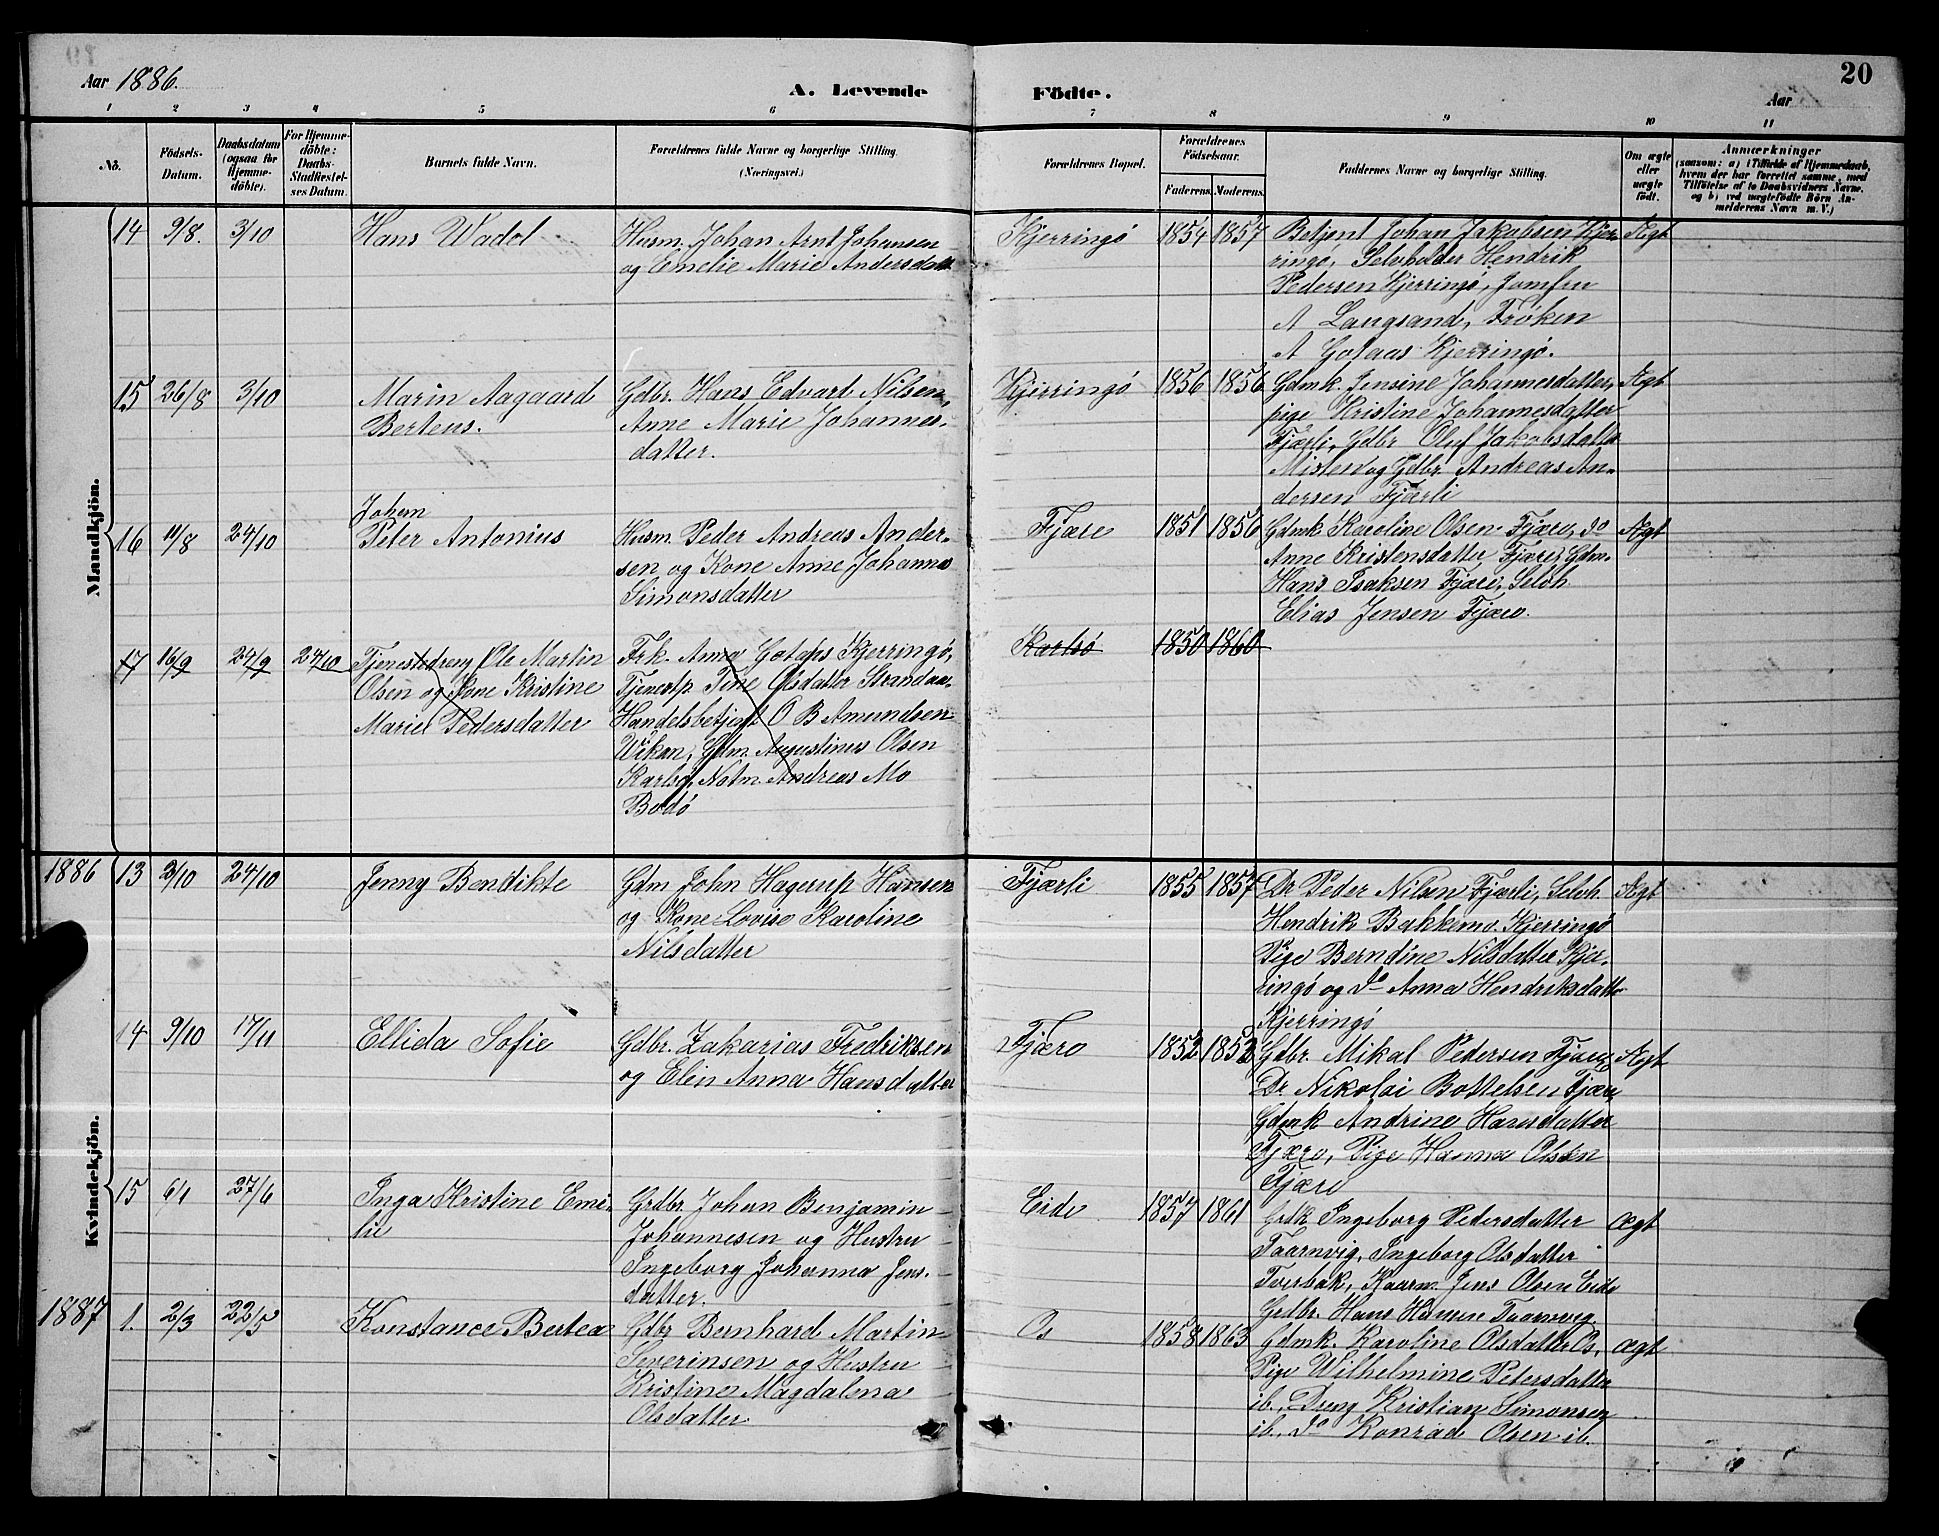 20
Aar 1886.
A. Levende Födte.
Aar
1 2 3 4 5 6 7 8 9 10 11
No.
Födsels-Datum.
Daabsdatum (ogsaa for Hjemmedöbte).
For Hjemmedöbte: Daabs-Stadfæstelses Datum.
Barnets fulde Navn.
Forældrenes fulde Navne og borgerlige Stilling. (Næringsvei.)
Forældrenes Bopæl.
Forældrenes Födselsaar.
Faderens. Moderens.
Faddernes Navne og borgerlige Stilling.
Om ægte eller uægte födt.
Anmærkninger
(saasom: a) i Tilfælde af Hjemmedaab, hvem der har forrettet samme, med Tilföielse af to Daabsvidners Navne. og b) ved uægtefödte Börn Anmelderens Navn m. V.)
Mandkjön.
14 9/8. 3/10 Hans Wadol
Husm. Johan Arnt Johansen
og Emelie Marie Andersdatt
Kjerringö 1854 1857
Betjent Johan Jakobsen Kjer-
ringö, Selvholder Hendrik
Pedersen Kjerringö, Jomfru
A Langsand, Fröken
A Gotaas Kjerringö.
Ægt
15 26/8 3/10 Marin Aagaard
Berteus.
Gdbr. Hans Edvart Nilsen,
Anne Marie Johannes-
datter.
Kjerringö 1856 1856
Gdmk. Jensine Johannesdatter,
pige Kristine Johannesdatter
Fjærli, Gdbr Oluf Jakobsdatter
Misten og Gdbr. Andreas An-
dersen Fjærli
Ægt
16 11/8 24/10 Johan
Peter Antonius
Husm. Peder Andreas Ander-
sen og Kone Anne Johanna
Simonsdatter
Fjære 1851 1856
Gdmk Karoline Olsen Fjære, do
Anne Kristensdatter Fjære, Gdm.
Hans Isaksen Fjære, Selvh
Elias Jensen Fjære.
Ægt
17 16/9 24/9 24/10 Tjenestedreng Ole Martin
Olsen og Kone Kristine
Marie Pedersdatter
Frk. Anna Gotaas Kjerringö,
Tjenestp Tine Olsdatter Strandaa
Handelsbetjent O B Amundsen
Wiken, Gdm. Augustinus Olsen
Karlsö, Notm. Andreas Mo
Bodö
Karlsö 1850 1860
Kvindekjön.
1886 13 3/10 24/10 Jenny Bendikte
Gdm John Hagerup Hansen
og Kone Lovise Karoline
Nilsdatter
Fjærli 1855 1857
Dr Peder Nilsen Fjærli, Selvh.
Hendrik Bakkemo Kjerringö
Pige Berndine Nilsdatter Kjer-
ringö og do Anna Hendriksdatte
Kjerringö
Ægt
14 9/10 17/11 Ellida Sofie
Gdbr. Zakarias Fredriksen
og Elen Anna Hansdatter
Fjære 1852 1852
Gdbr. Mikal Pedersen Fjære,
Dr. Nikolai Bottelsen Fjære,
Gdmk Andrine Hansdatter
Fjære, Pige Hanna Olsen
Fjære
Ægt
15 6/1 27/6 Inga Kristine Emi-
lie
Grdbr Johan Benjamin
Johannesen og Hustru
Ingeborg Johanna Jens-
datter.
Eide 1857 1861
Grdk Ingeborg Pedersdatter
Taarnvig, Ingeborg Olsdatter
Tverbak, Kaarm. Jens Olsen Eide
Grdbr. Hans Hansen Taarnvig.
Ægt
1887 1. 2/3 22/5 Konstance Bertea
Gdbr Bernhard Martin
Severinsen og Hustru
Kristine Magdalena
Olsdatter
Os 1858 1863
Gdmk. Karoline Olsdatter Os,
Pige Wilhelmine Petersdatter
ib., Dreng Kristian Simonsen
ib., do Konrad Olsen ib.
Ægt